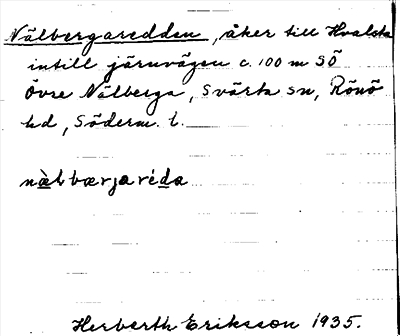 Nälbergaredden, åker till Hvalsta
intill järnvägen c. 100 m SÖ
Övre Nälberga, Svärta sn, Rönö
hd, Söderm. l.
Herberth Eriksson 1935.